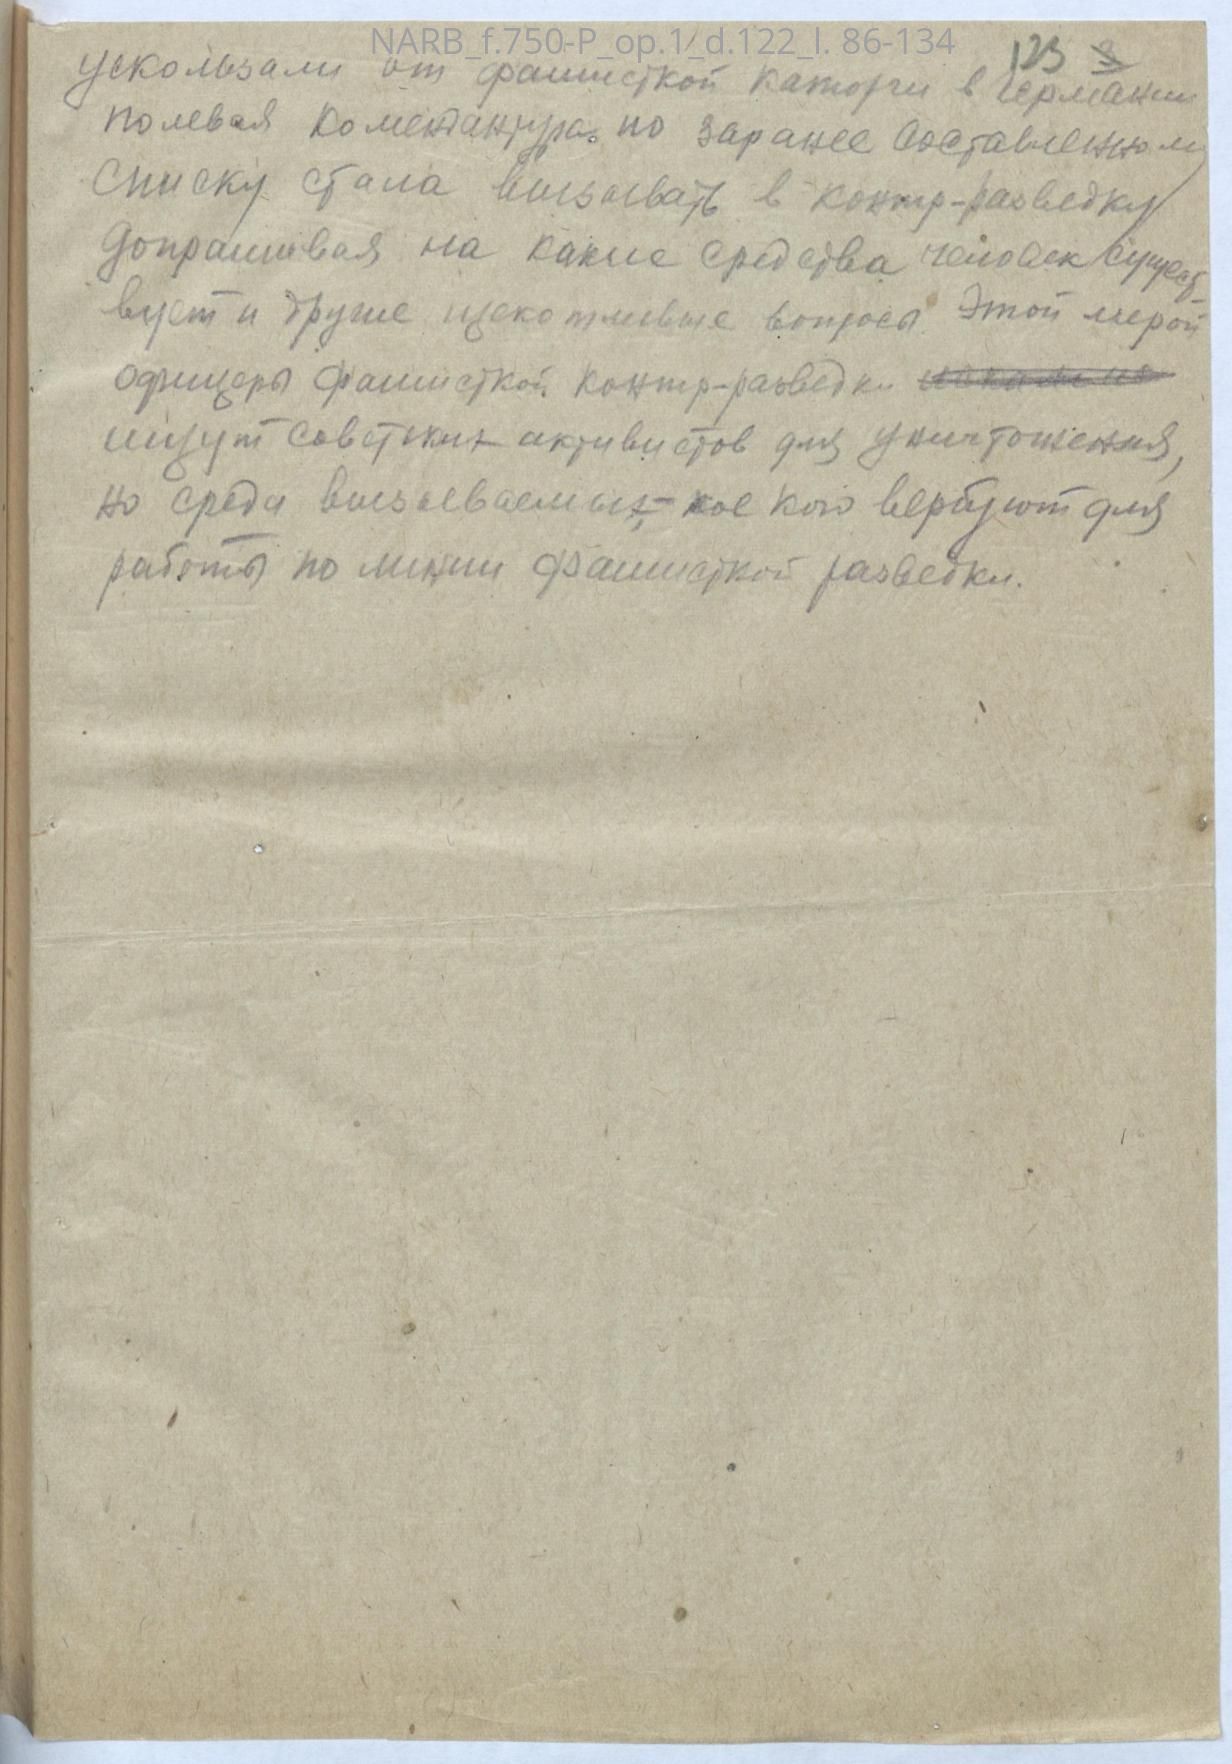 NARB_f.750-P_op.1_d.122_l. 86-134
123 3
ускользали от фашисткой каторги в Германии
полевая комендантура по заранее составленному
списку стала вызывать в контр-разведку
допрашивая на какие средства человек сущест
вует и другие щекотливые вопросы. Этой мерой
офицеры фашисткой контр-разведки
ищут советских активистов для уничтожения,
но среди вызываемых кое кого вербуют для
работы по линии фашисткой разведки.